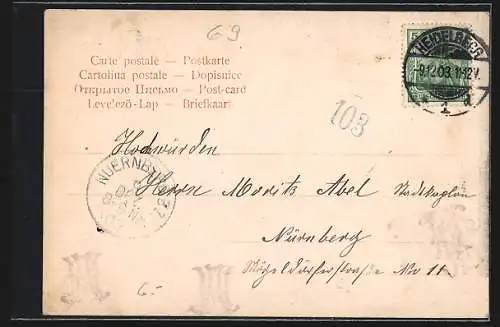 69
Carte postale — Postkarte
Cartolina postale — Dopisnice
Открытое Письмо — Post-card
Levelező-Lap — Briefkaart
HEIDELBERG
9.12.03.11-12V.
1 a
5
103
Hochwürden
NUERNBG.
Herrn Moritz Abel Stadtkaplan
Nürnberg
Mögeldorferstraße No 11
6.